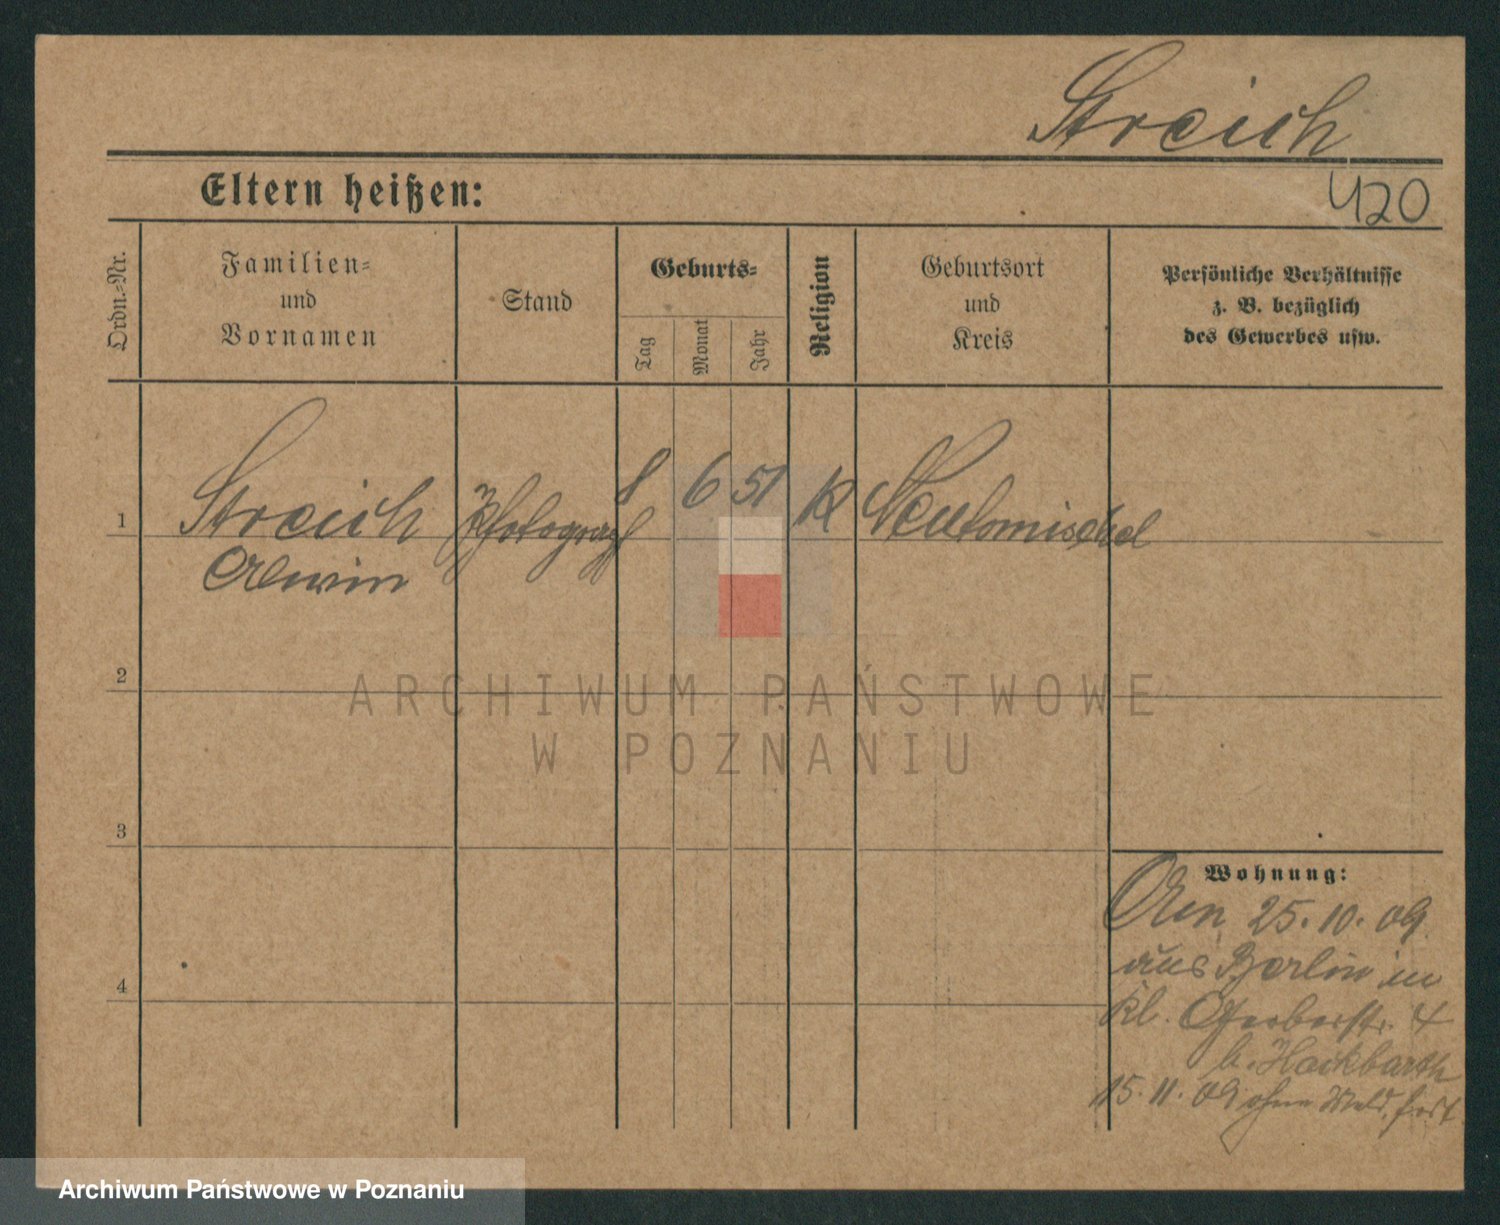 Streich
Eltern heißen:
420
Ordn.-Nr.
Familien-
und
Vornamen
Stand
Geburts-
Tag
Monat
Jahr
Religion
Geburtsort
und
Kreis
Persönliche Verhältnisse
z. B. bezüglich
des Gewerbes usw.
1
Streich Photograph 8 6 51 K Neutomischel
Alwin
2
ARCHIWUM PAŃSTWOWE
W POZNANIU
3
Wohnung:
25. 10. 09
aus Berlin in
4
kl. Gerberstr. 4
b. Hackbarth
15. 11. 09 ohne Meld. fort
Archiwum Państwowe w Poznaniu